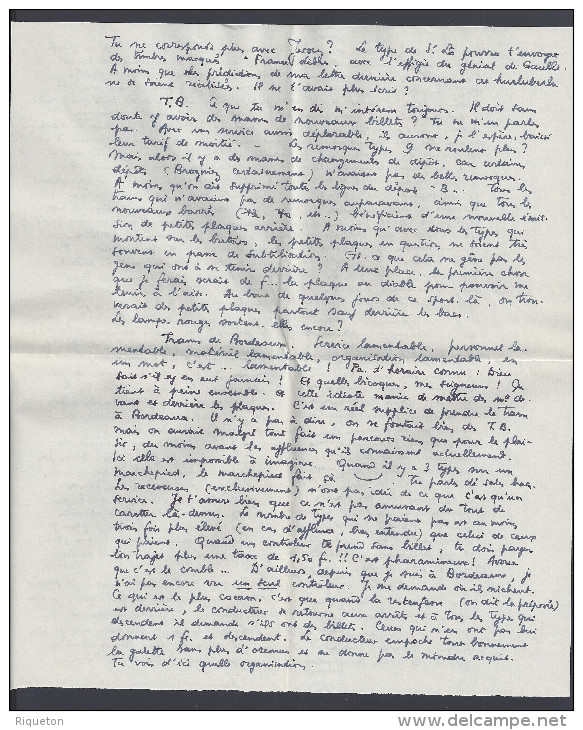 Tu ne corresponds plus avec Jarou ? Le type de St Lô pourra t'envoyer
des timbres marqués "France libre" avec l'effigie du général de Gaulle.
A moins que les prédictions de ma lettre dernière concernant ces hurluberlu
ne se soient réalisées. Il ne t'avais plus écris ?
T.B. Ce que tu m'en dis m'intéresse toujours. Il doit sans
doute y avoir des masses de nouveaux billets ? Tu ne m'en parles
pas. Avec un service aussi déplorable, ils auront, je l'espère, baissé
leur tarif de moitié. - Les remorques types 9 ne roulent plus ?
Mais alors il y a des masses de changements de dépôts, car certains
dépôts (certainement) n'avaient pas de belles remorques.
A moins qu'on ait supprimé toute les lignes du dépôt B. Tous les
trams qui n'avaient pas de remorques auparavant, ainsi que tous les
nouveaux barrés bénéficient d'une nouvelle émis-
sion de petites plaques arrière. A moins qu'avec tous les types qui
montent sur les butoirs, les petites plaques en question ne soient très
souvent en panne de subtilisation. Est-ce que cela ne gêne pas les
gens qui ont à se tenir derrière ? A leur place, la première chose
que je ferais serait de f... la plaque au diable pour pouvoir me
tenir à l'aise. Au bout de quelques jours de ce sport-là, on trou-
verait des petites plaques partout sauf derrière les bacs.
Les lampes rouges sortent-elles encore ?
Trams de Bordeaux. Service lamentable, personnel la-
mentable, matériel lamentable, organisation lamentable, en
un mot, c'est ... lamentable ! Pas d'horaire connu : Dieu
sait s'il y en eut jamais ! Et quelles bicoques, mes Seigneurs ! Ça
tient à peine ensemble. Et cette idiote manie de mettre des nos de-
vant et derrière les plaques. C'est un réel supplice de prendre le tram
à Bordeaux. Il n'y a pas à dire, on se foutait bien des T.B.
mais on aurait malgré tout fait un parcours rien que pour le plai-
sir, du moins avant les affluences qu'ils connaissent actuellement.
Ici cela est impossible à imaginer. Quand il y a 3 types sur un
marchepied, le marchepied fait ça. Tu parles de sales bacs.
Les receveuses (exclusivement) n'ont pas idée de ce que c'est qu'un
service. Je t'assure bien que ce n'est pas amusant du tout de
carotter là-dessus. Le nombre de types qui ne paient pas est au moins
trois fois plus élevé (en cas d'affluence, bien entendu) que celui de ceux
qui paient. Quand un contrôleur te prend sans billet, tu dois payer
ton trajet plus une taxe de 1,50 fr. !! C'est pharamineux ! Avoue
que c'est le comble ... D'ailleurs, depuis que je suis à Bordeaux, je
n'ai pas encore vu un seul contrôleur. Je me demande où ils nichent.
Ce qui est le plus cocasse, c'est que quand la (on dit la préposée)
est derrière, le conducteur se retourne aux arrêts et à tous les types qui
descendent il demande s'ils ont des billets. Ceux qui n'en ont pas lui
donnent 1 fr. et descendent. Le conducteur empoche tout bonnement
la galette sans plus d'examen et ne donne pas le moindre acquis.
Tu vois d'ici quelle organisation.
Riqueton
delcampe.net